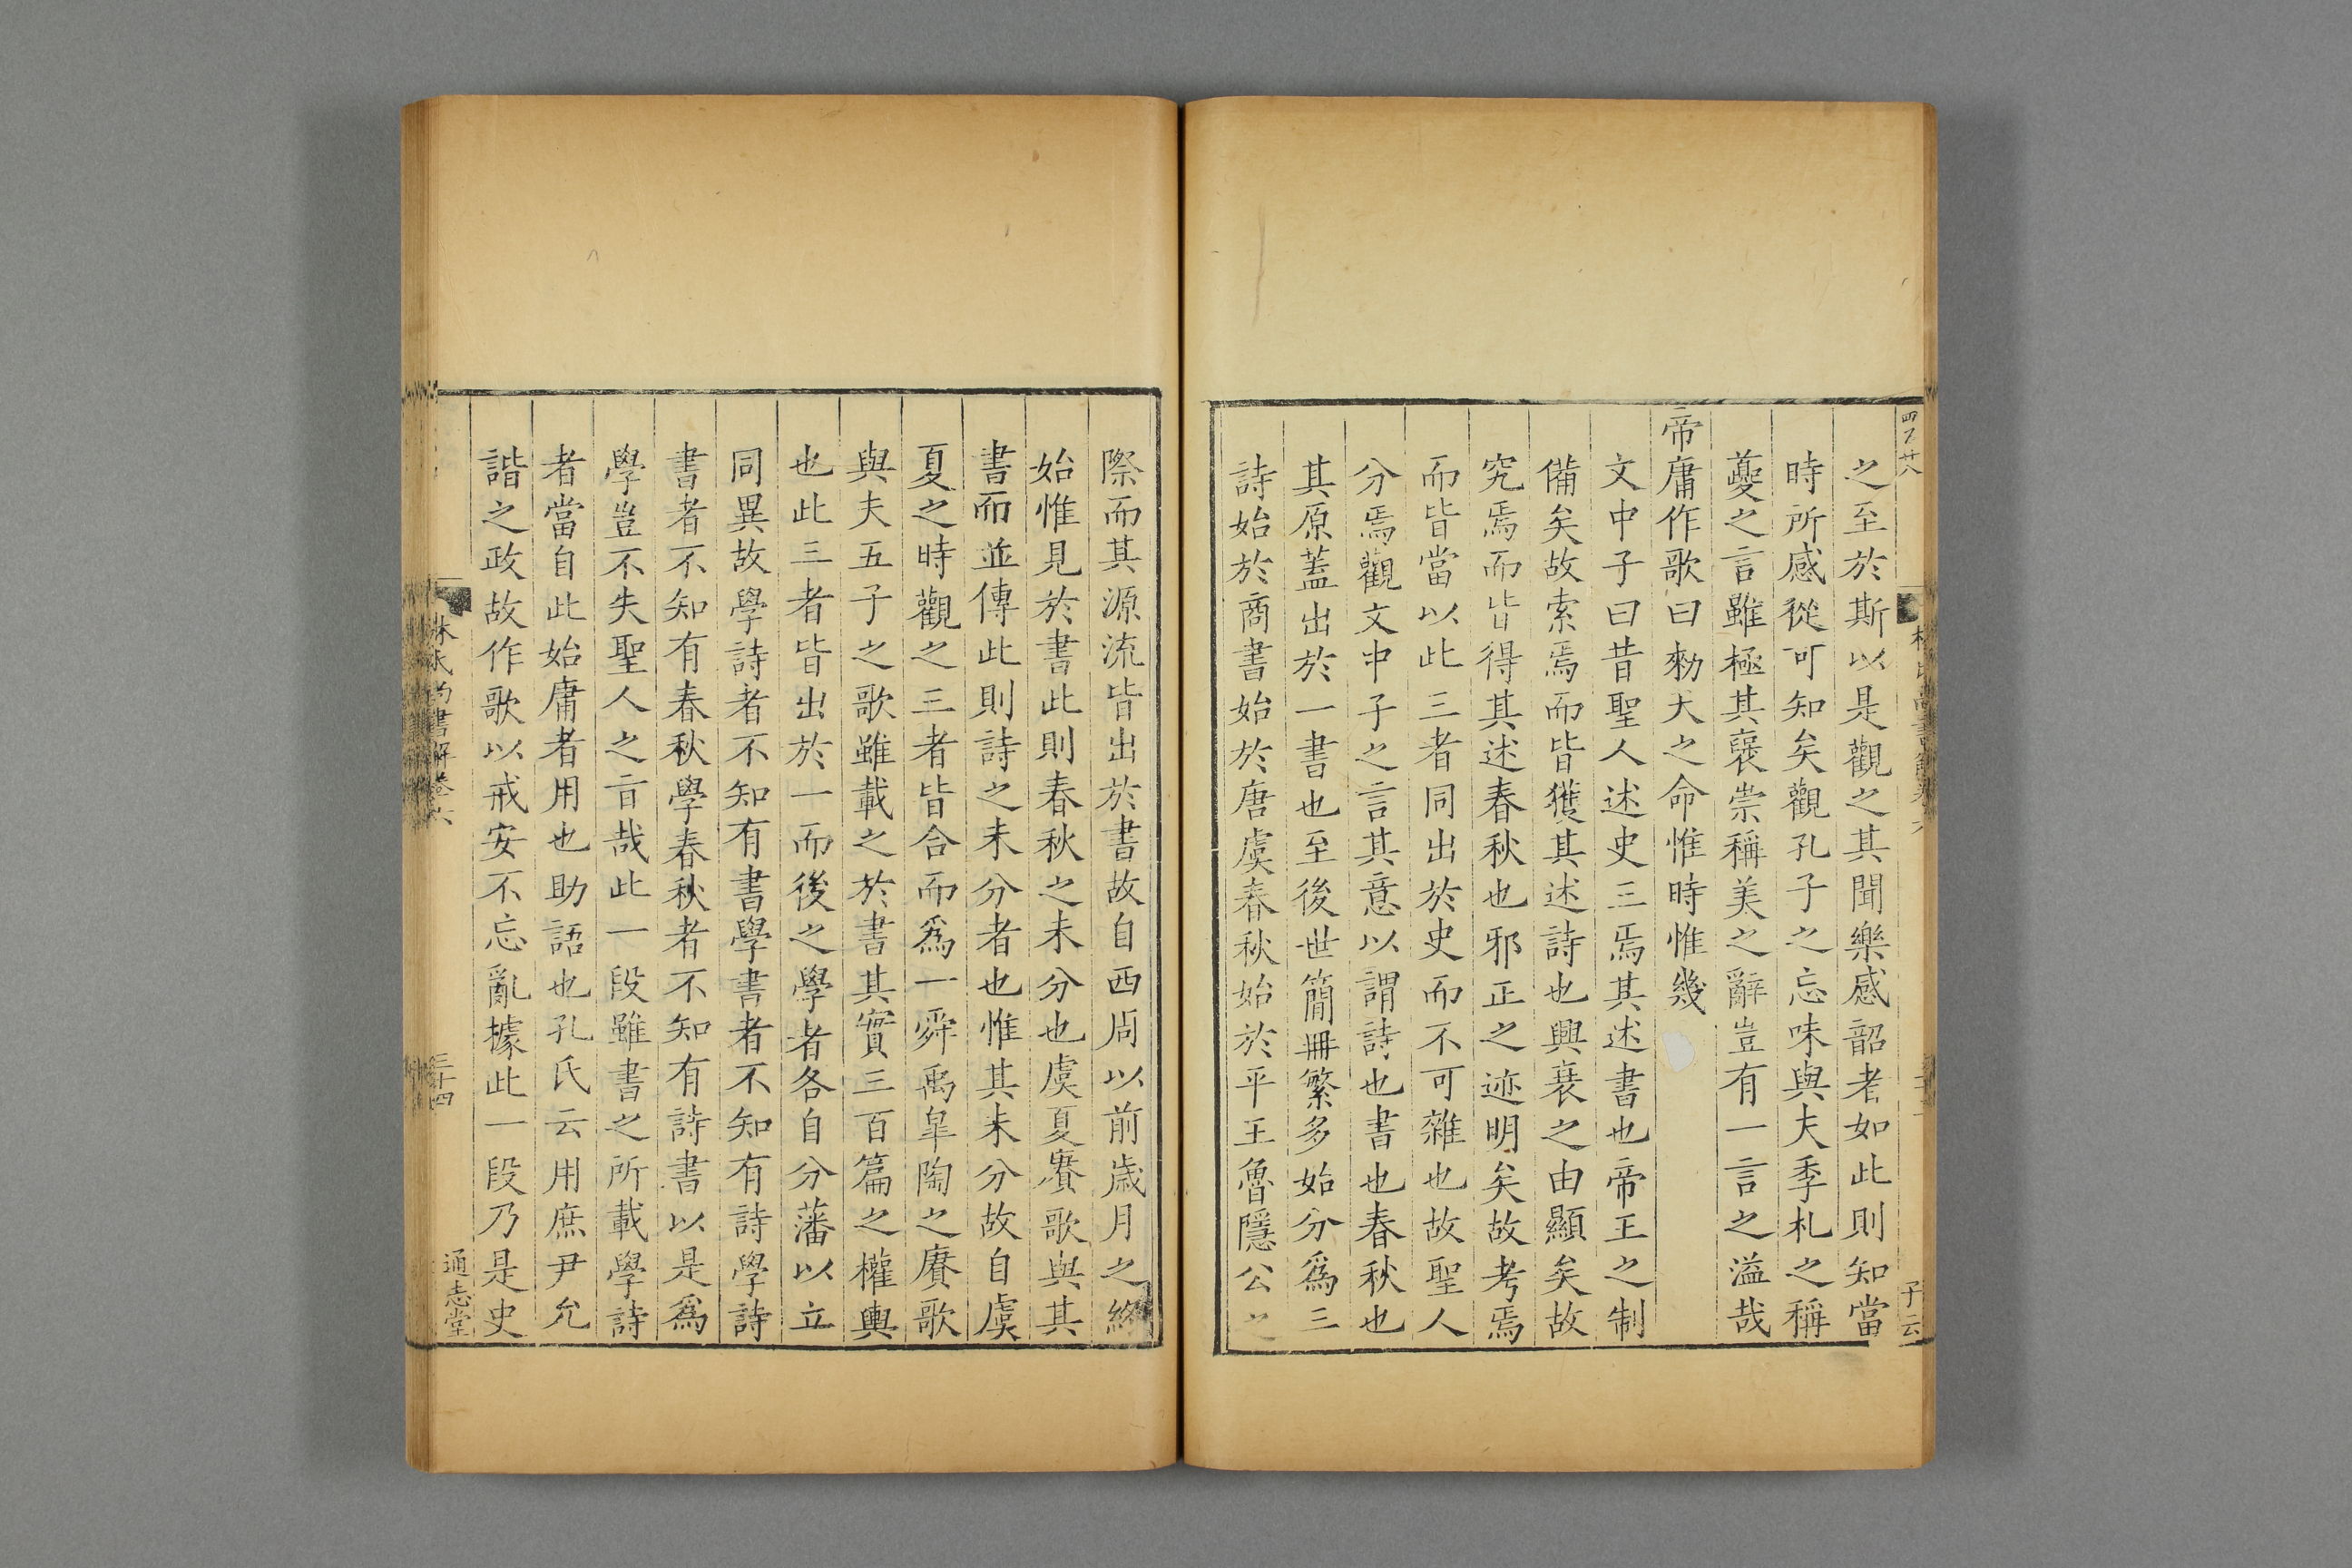 之至於斯以是觀之其聞樂感韶者如此則知當
時所感從可知矣觀孔子之忘味與夫季札之稱
夔之言雖極其襃崇稱美之辭豈有一言之溢哉
帝庸作歌曰勑天之命惟時惟幾
文中子曰昔聖人述史三焉其述書也帝王之制
備矣故索焉而皆獲其述詩也興衰之由顯矣故
究焉而皆得其述春秋也邪正之迹明矣故考焉
而皆當以此三者同出於史而不可雜也故聖人
分焉觀文中子之言其意以謂詩也書也春秋也
其原蓋出於一書也至後世簡冊繁多始分爲三
詩始於商書始於唐虞春秋始於平王魯隱公之
際而其源流皆出於書故自西周以前歲月之終
始惟見於書此則春秋之未分也虞夏賡歌與其
書而並傳此則詩之未分者也惟其未分故自虞
夏之時觀之三者皆合而爲一舜禹皐陶之賡歌
與夫五子之歌雖載之於書其實三百篇之權輿
也此三者皆出於一而後之學者各自分藩以立
同異故學詩者不知有書學書者不知有詩學詩
書者不知有春秋學春秋者不知有詩書以是爲
學豈不失聖人之旨哉此一段雖書之所載學詩
者當自此始庸者用也助語也孔氏云用庶尹允
諧之政故作歌以戒安不忘亂據此一段乃是史
林氏尚書解卷六
三十四
通志堂